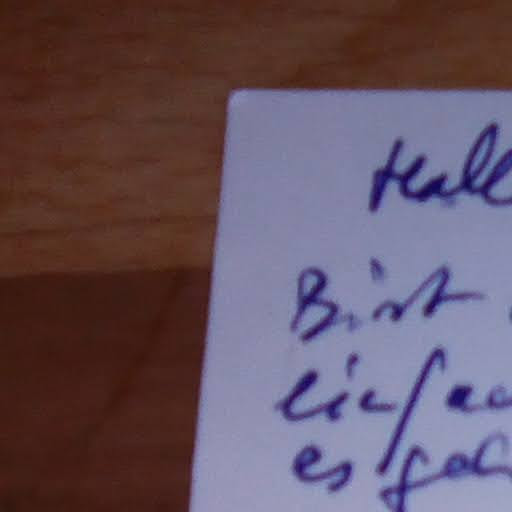 Hall
Bist
einfac
es geh